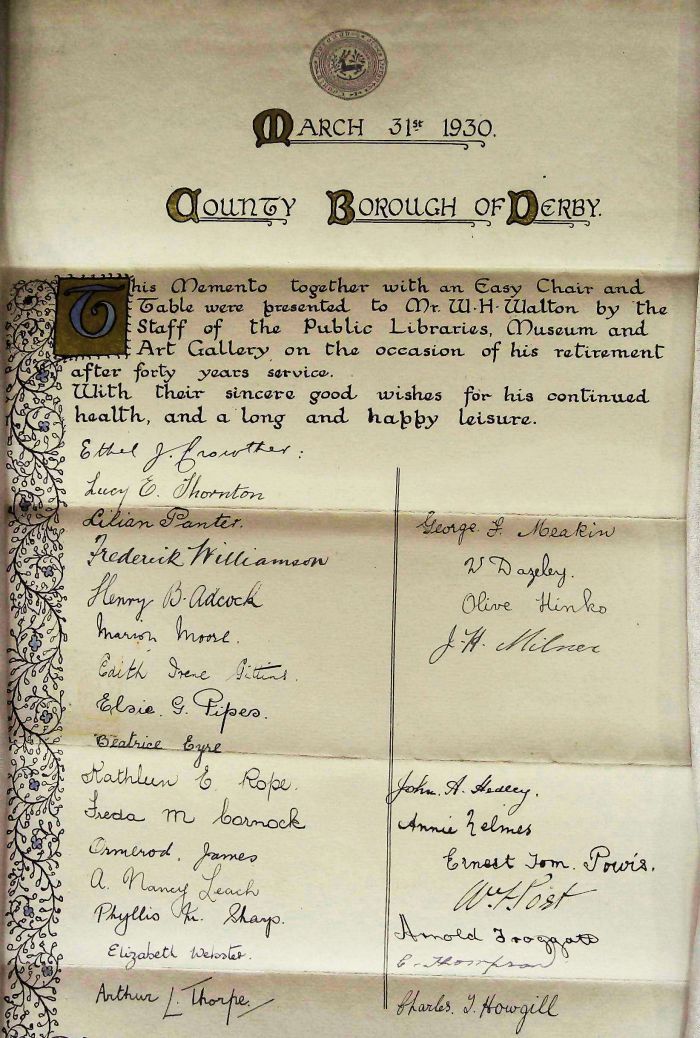 MARCH 31st 1930.
COUNTY BOROUGH OF DERBY.
This Memento together with an Easy Chair and
Table were presented to Mr. W.H. Walton by the
Staff of the Public Libraries, Museum and
Art Gallery on the occasion of his retirement
after forty years service.
With their sincere good wishes for his continued
health, and a long and happy leisure.
Ethel J. Crowther:
Lucy E. Thornton
Lilian Panter.
Frederick Williamson
Henry B. Adcock
Marion Moore.
Edith Irene Gittins.
Elsie. G. Pipes.
Beatrice Eyre
Kathleen E. Rope.
Freda M Cornock
Ormerod. James
A. Nancy Leach
Phyllis M. Sharp.
Elizabeth Webster.
Arthur L. Thorpe.
George. F. Meakin
W Dazeley.
Olive Hinko
J. H. Milner
John. A. Hedley.
Annie Nelmes
Ernest Tom. Powis.
Wm H Post
Arnold Froggatt
E. Thompson
Charles. J. Howgill